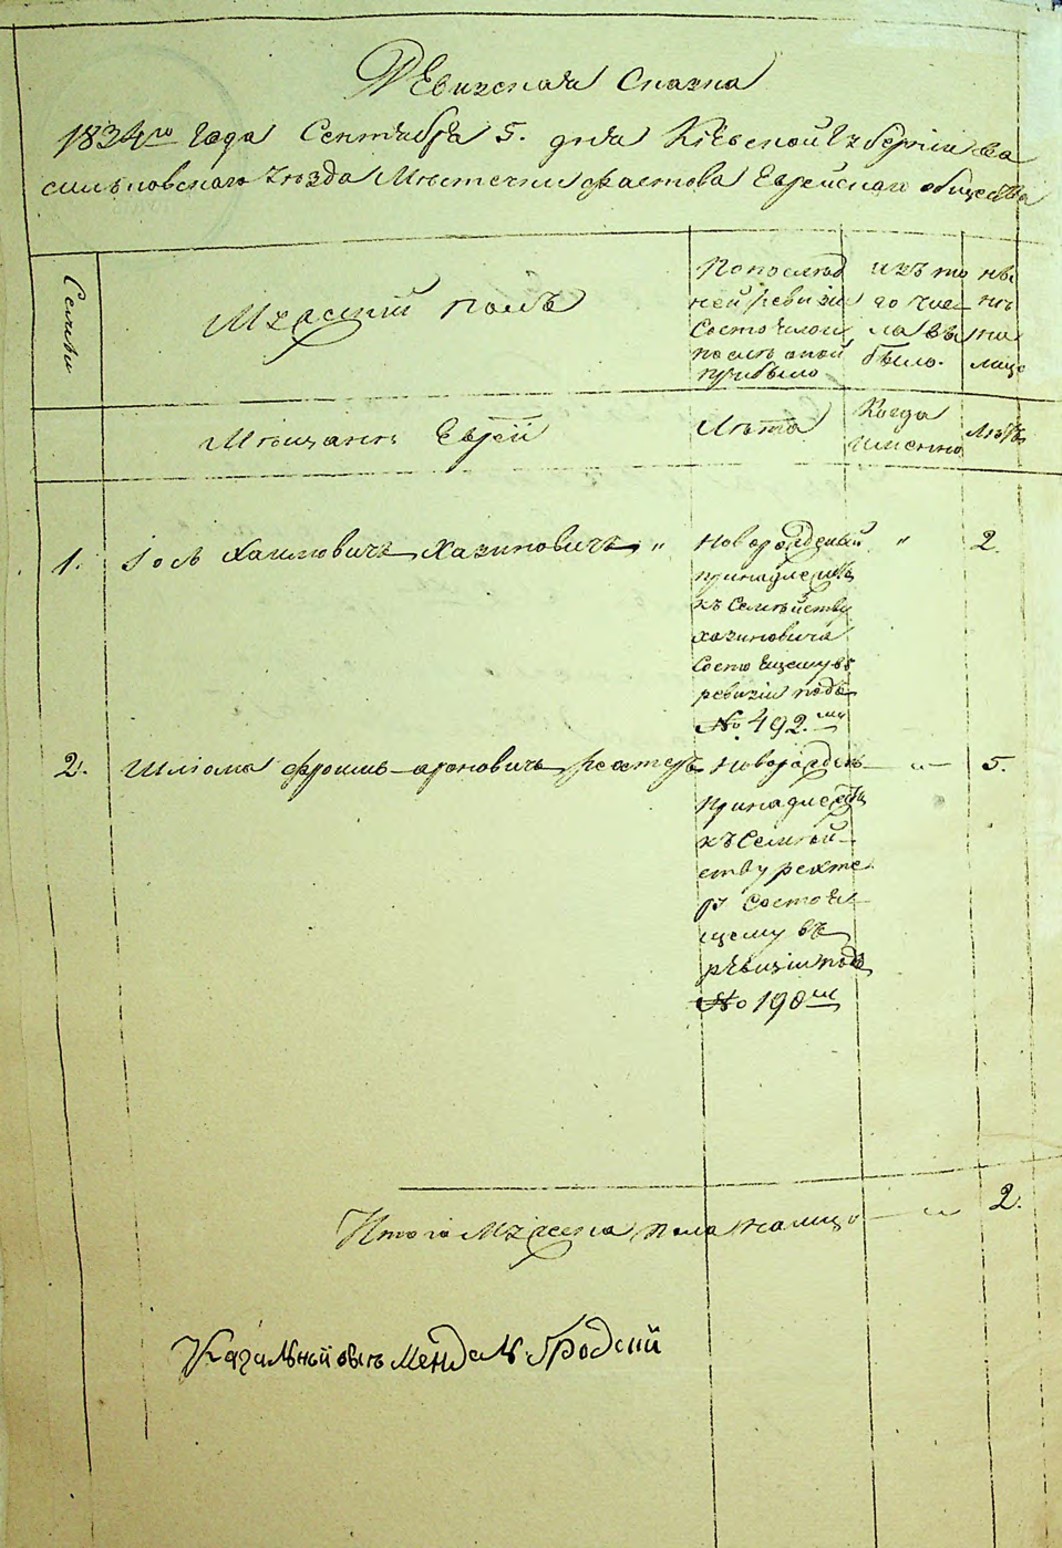 Ревизская Сказка
1834го года Сентября 5. дня Кіевской Губерніи Ва
сильковскаго Уезда Мѣстечки Фастова Еврейскаго общества
Семьи
Мужеский полъ
По послѣд
ней ревизіи
Состояло и
послѣ оной
прибыло
изъ то
го чис
ла вы
было.
ны
нѣ
на
лицо
Мѣщанѣ Евреи
Лѣта
Когда
именно
Лѣтъ
1. Іось Хаимовичъ Хазиновичъ „ Новорожденый „ 2.
принадлежитъ
къ Семѣйству
Хазиновича
Состоящему въ
ревизіи подъ
№ 492.мъ
2. Шліома Фроимъ-ароновичъ рехтеръ Новорожденъ „ 5.
Принадлежитъ
къ Семѣй-
ству рехте
ръ Состоя-
щему въ
ревизіи подъ
№ 198мъ
Итого Мужеска пола налицо — „ 2.
Кагальный Мендель Бродский